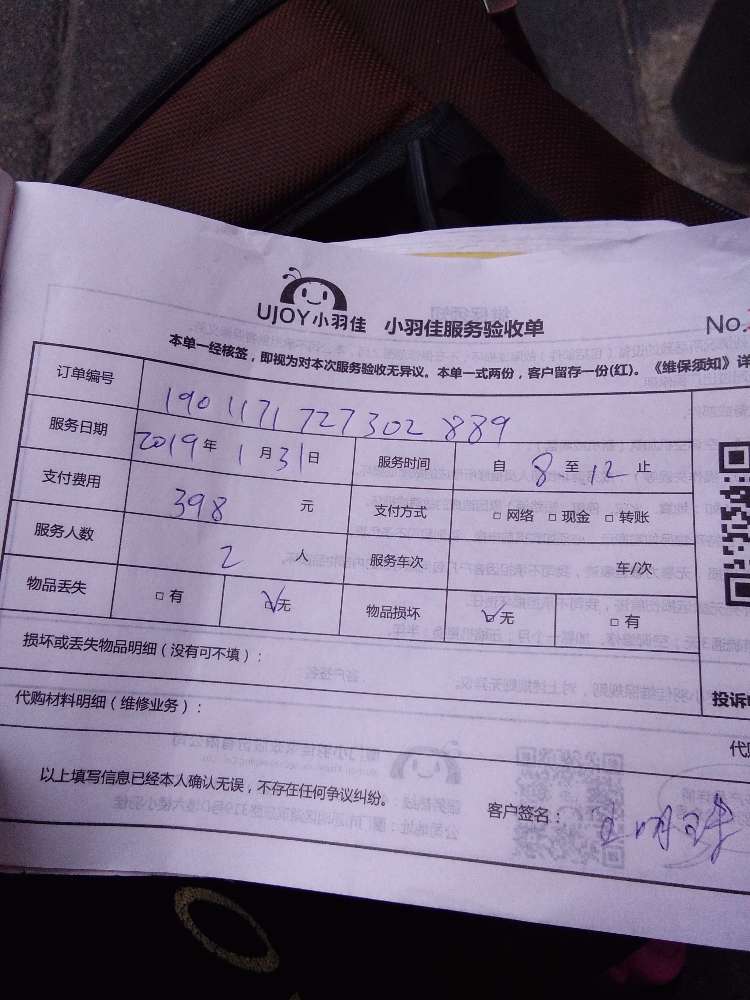 UJOY小羽佳 小羽佳服务验收单
No.
本单一经核签，即视为对本次服务验收无异议。本单一式两份，客户留存一份(红)。《维保须知》详
订单编号 1901171727302889
服务日期 2019年1月31日 服务时间 自8至12止
支付费用 398元 支付方式 □网络 □现金 □转账
服务人数 2人 服务车次 车/次
物品丢失 □有 ☑无 物品损坏 ☑无 □有
损坏或丢失物品明细（没有可不填）：
投诉
代购材料明细（维修业务）：
代
以上填写信息已经本人确认无误，不存在任何争议纠纷。
客户签名：